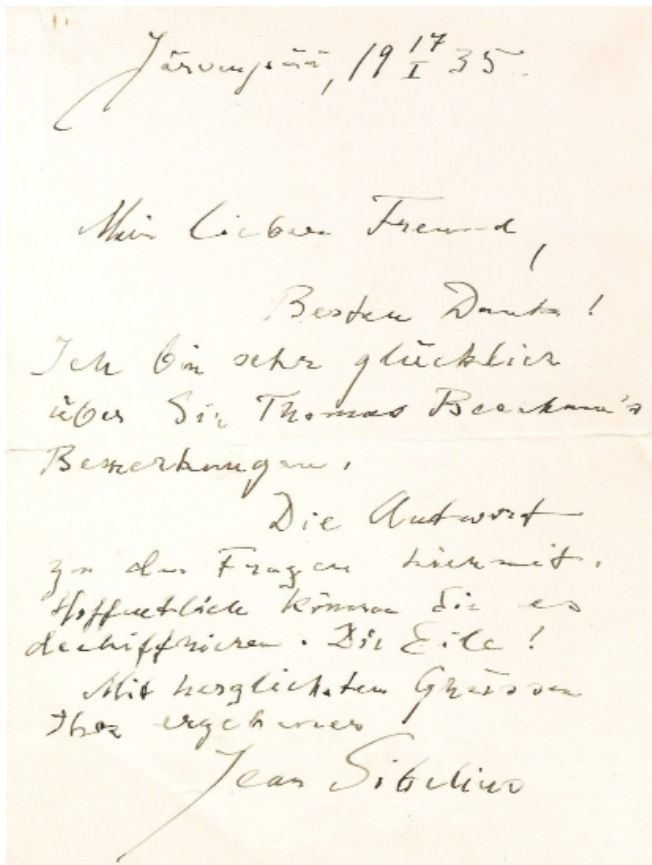 Järvenpää, 19 17/I 35.
Mein lieber Freund,
Besten Dank!
Ich bin sehr glücklich
über Sir Thomas Beecham's
Bemerkungen.
Die Antwort
zu den Fragen hiermit.
Hoffentlich können Sie es
dechiffrieren. Die Eile!
Mit herzlichsten Grüssen
Ihr ergebener
Jean Sibelius